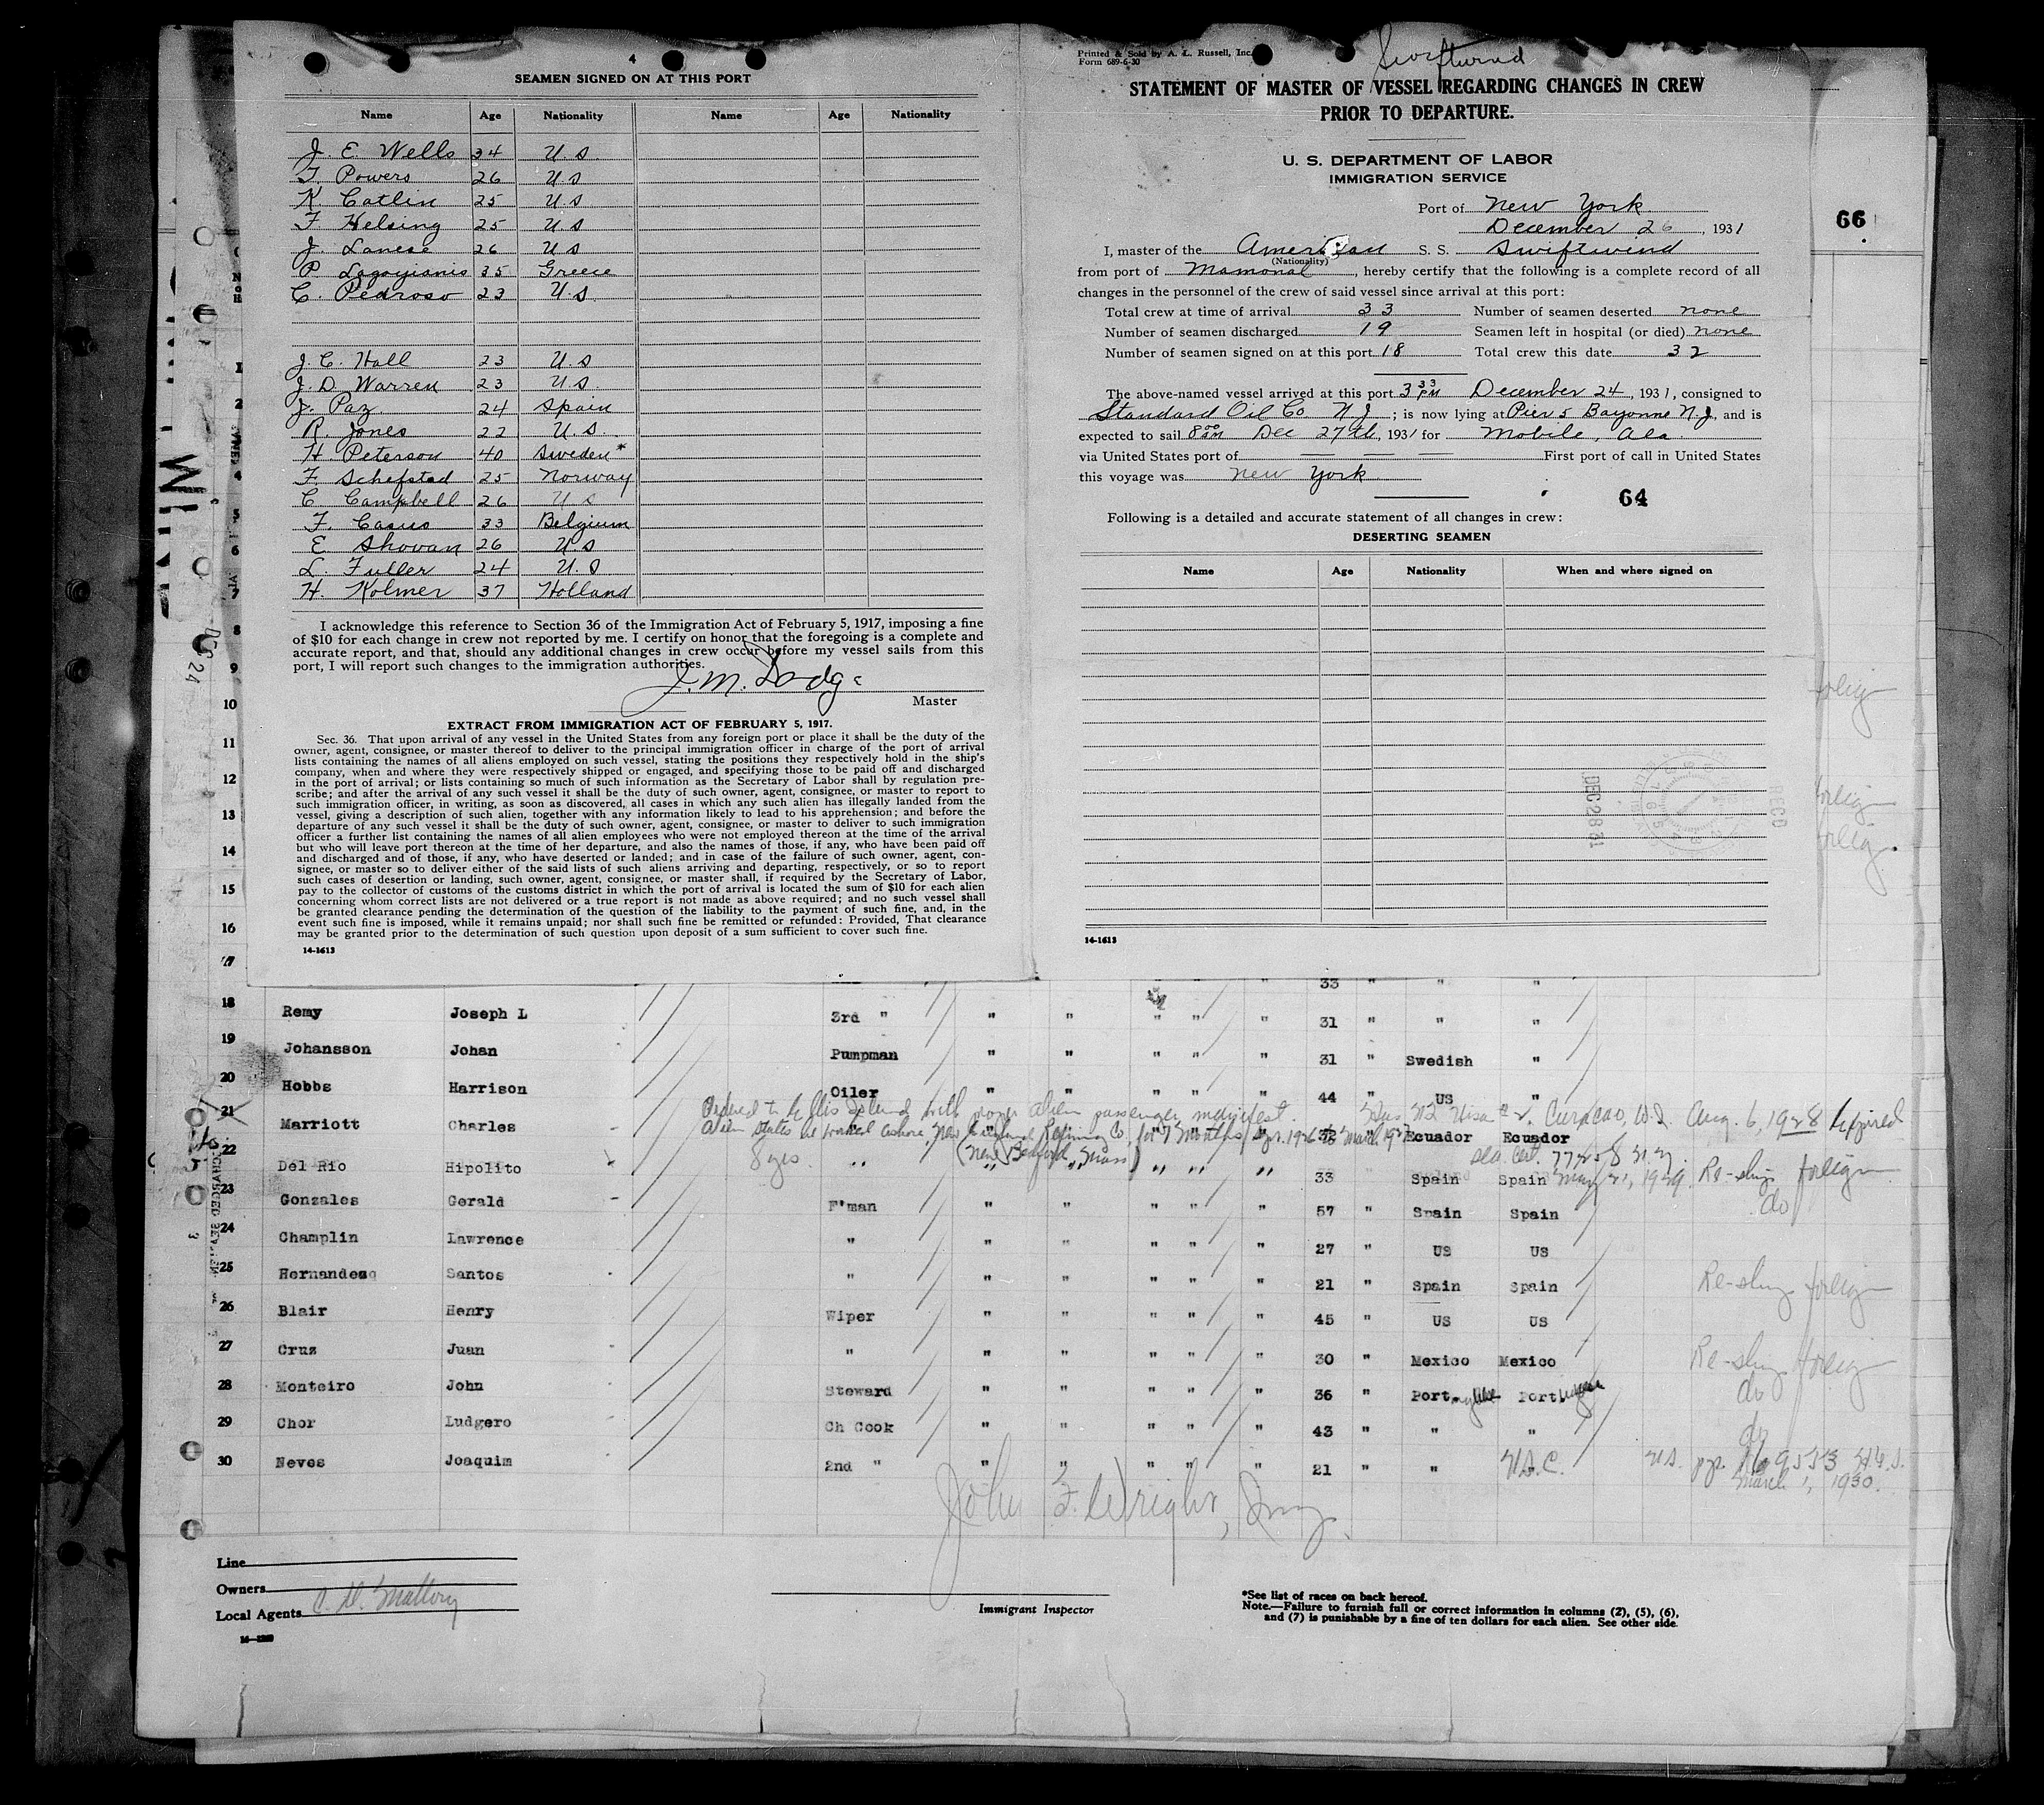 4
SEAMEN SIGNED ON AT THIS PORT
Name Age Nationality Name Age Nationality
J. E. Wells 34 U.S.
T Powers 26 U.S
K Catlin 25 U.S
F Helsing 25 U.S
J. Lanese 26 U.S
P Lagoyianis 35 Greece
C. Pedroso 23 U.S.
J. C. Hall 23 U.S
J. D. Warren 23 U.S.
J. Paz 24 Spain
R. Jones 22 U.S.
H. Peterson 40 Sweden*
F. Schefstad 25 Norway
C Campbell 26 U S
F. Casus 33 Belgium
E Shovan 26 U.S
L. Fuller 24 U.S
H. Kolmer 37 Holland
I acknowledge this reference to Section 36 of the Immigration Act of February 5, 1917, imposing a fine
of $10 for each change in crew not reported by me. I certify on honor that the foregoing is a complete and
accurate report, and that, should any additional changes in crew occur before my vessel sails from this
port, I will report such changes to the immigration authorities.
J. M. Dodge
Master
EXTRACT FROM IMMIGRATION ACT OF FEBRUARY 5, 1917.
Sec. 36. That upon arrival of any vessel in the United States from any foreign port or place it shall be the duty of the
owner, agent, consignee, or master thereof to deliver to the principal immigration officer in charge of the port of arrival
lists containing the names of all aliens employed on such vessel, stating the positions they respectively hold in the ship's
company, when and where they were respectively shipped or engaged, and specifying those to be paid off and discharged
in the port of arrival; or lists containing so much of such information as the Secretary of Labor shall by regulation pre-
scribe; and after the arrival of any such vessel it shall be the duty of such owner, agent, consignee, or master to report to
such immigration officer, in writing, as soon as discovered, all cases in which any such alien has illegally landed from the
vessel, giving a description of such alien, together with any information likely to lead to his apprehension; and before the
departure of any such vessel it shall be the duty of such owner, agent, consignee, or master to deliver to such immigration
officer a further list containing the names of all alien employees who were not employed thereon at the time of the arrival
but who will leave port thereon at the time of her departure, and also the names of those, if any, who have been paid off
and discharged and of those, if any, who have deserted or landed; and in case of the failure of such owner, agent, con-
signee, or master so to deliver either of the said lists of such aliens arriving and departing, respectively, or so to report
such cases of desertion or landing, such owner, agent, consignee, or master shall, if required by the Secretary of Labor,
pay to the collector of customs of the customs district in which the port of arrival is located the sum of $10 for each alien
concerning whom correct lists are not delivered or a true report is not made as above required; and no such vessel shall
be granted clearance pending the determination of the question of the liability to the payment of such fine, and, in the
event such fine is imposed, while it remains unpaid; nor shall such fine be remitted or refunded: Provided, That clearance
may be granted prior to the determination of such question upon deposit of a sum sufficient to cover such fine.
14-1613
Printed & Sold by A. L. Russell, Inc.
Form 689-6-30
Swiftwind
STATEMENT OF MASTER OF VESSEL REGARDING CHANGES IN CREW
PRIOR TO DEPARTURE.
U. S. DEPARTMENT OF LABOR
IMMIGRATION SERVICE
Port of New York
December 26, 1931
66
I, master of the American S. S. Swiftwind
(Nationality)
from port of Mamonal, hereby certify that the following is a complete record of all
changes in the personnel of the crew of said vessel since arrival at this port:
Total crew at time of arrival 33 Number of seamen deserted none
Number of seamen discharged 19 Seamen left in hospital (or died) none
Number of seamen signed on at this port 18 Total crew this date 32
The above-named vessel arrived at this port 3 33 PM December 24, 1931, consigned to
Standard Oil Co N J; is now lying at Pier 5 Bayonne N.J, and is
expected to sail 8 00 AM Dec 27th, 1931 for Mobile, Ala.
via United States port of — — — First port of call in United States
this voyage was New York
64
Following is a detailed and accurate statement of all changes in crew:
DESERTING SEAMEN
Name Age Nationality When and where signed on
DEC 28 31
RECD
14-1613
DEC 24
1
2
4
5
6
7
8
9
10
11
12
13
14
15
16
17
33 " " "
18 Remy Joseph L 3rd " " " " " " 31 " " "
19 Johansson Johan Pumpman " " " " " 31 " Swedish "
20 Hobbs Harrison Oiler " " " " " 44 " US "
Ordered to Ellis Island with proper alien passenger manifest. Curacao, W.I. Aug. 6, 1928 Expired
21 Marriott Charles " Ecuador Ecuador
alien states he worked ashore, New England Refining Co, for 7 months
8 yrs. (New Bedford, Mass)
22 Del Rio Hipolito " " " " " " 33 Spain Spain Re-ship foreign
23 Gonzales Gerald F'man " " " " " 57 " Spain Spain do
24 Champlin Lawrence " " " " " " 27 " US US
25 Hernandez Santos " " " " " " 21 " Spain Spain Re-ship foreign
26 Blair Henry Wiper " " " " " 45 " US US
27 Cruz Juan " " " " " " 30 " Mexico Mexico Re-ship foreign
28 Monteiro John Steward " " " " " 36 " Port Portuguese do
29 Chor Ludgero Ch Cook " " " " " 43 " " " do
30 Neves Joaquim 2nd " " " " " " 21 " " U.S.C.
March 1, 1930.
John F. Wright, Insp.
Line
Owners
Local Agents C. D. Mallory
Immigrant Inspector
*See list of races on back hereof.
Note.—Failure to furnish full or correct information in columns (2), (5), (6),
and (7) is punishable by a fine of ten dollars for each alien. See other side.